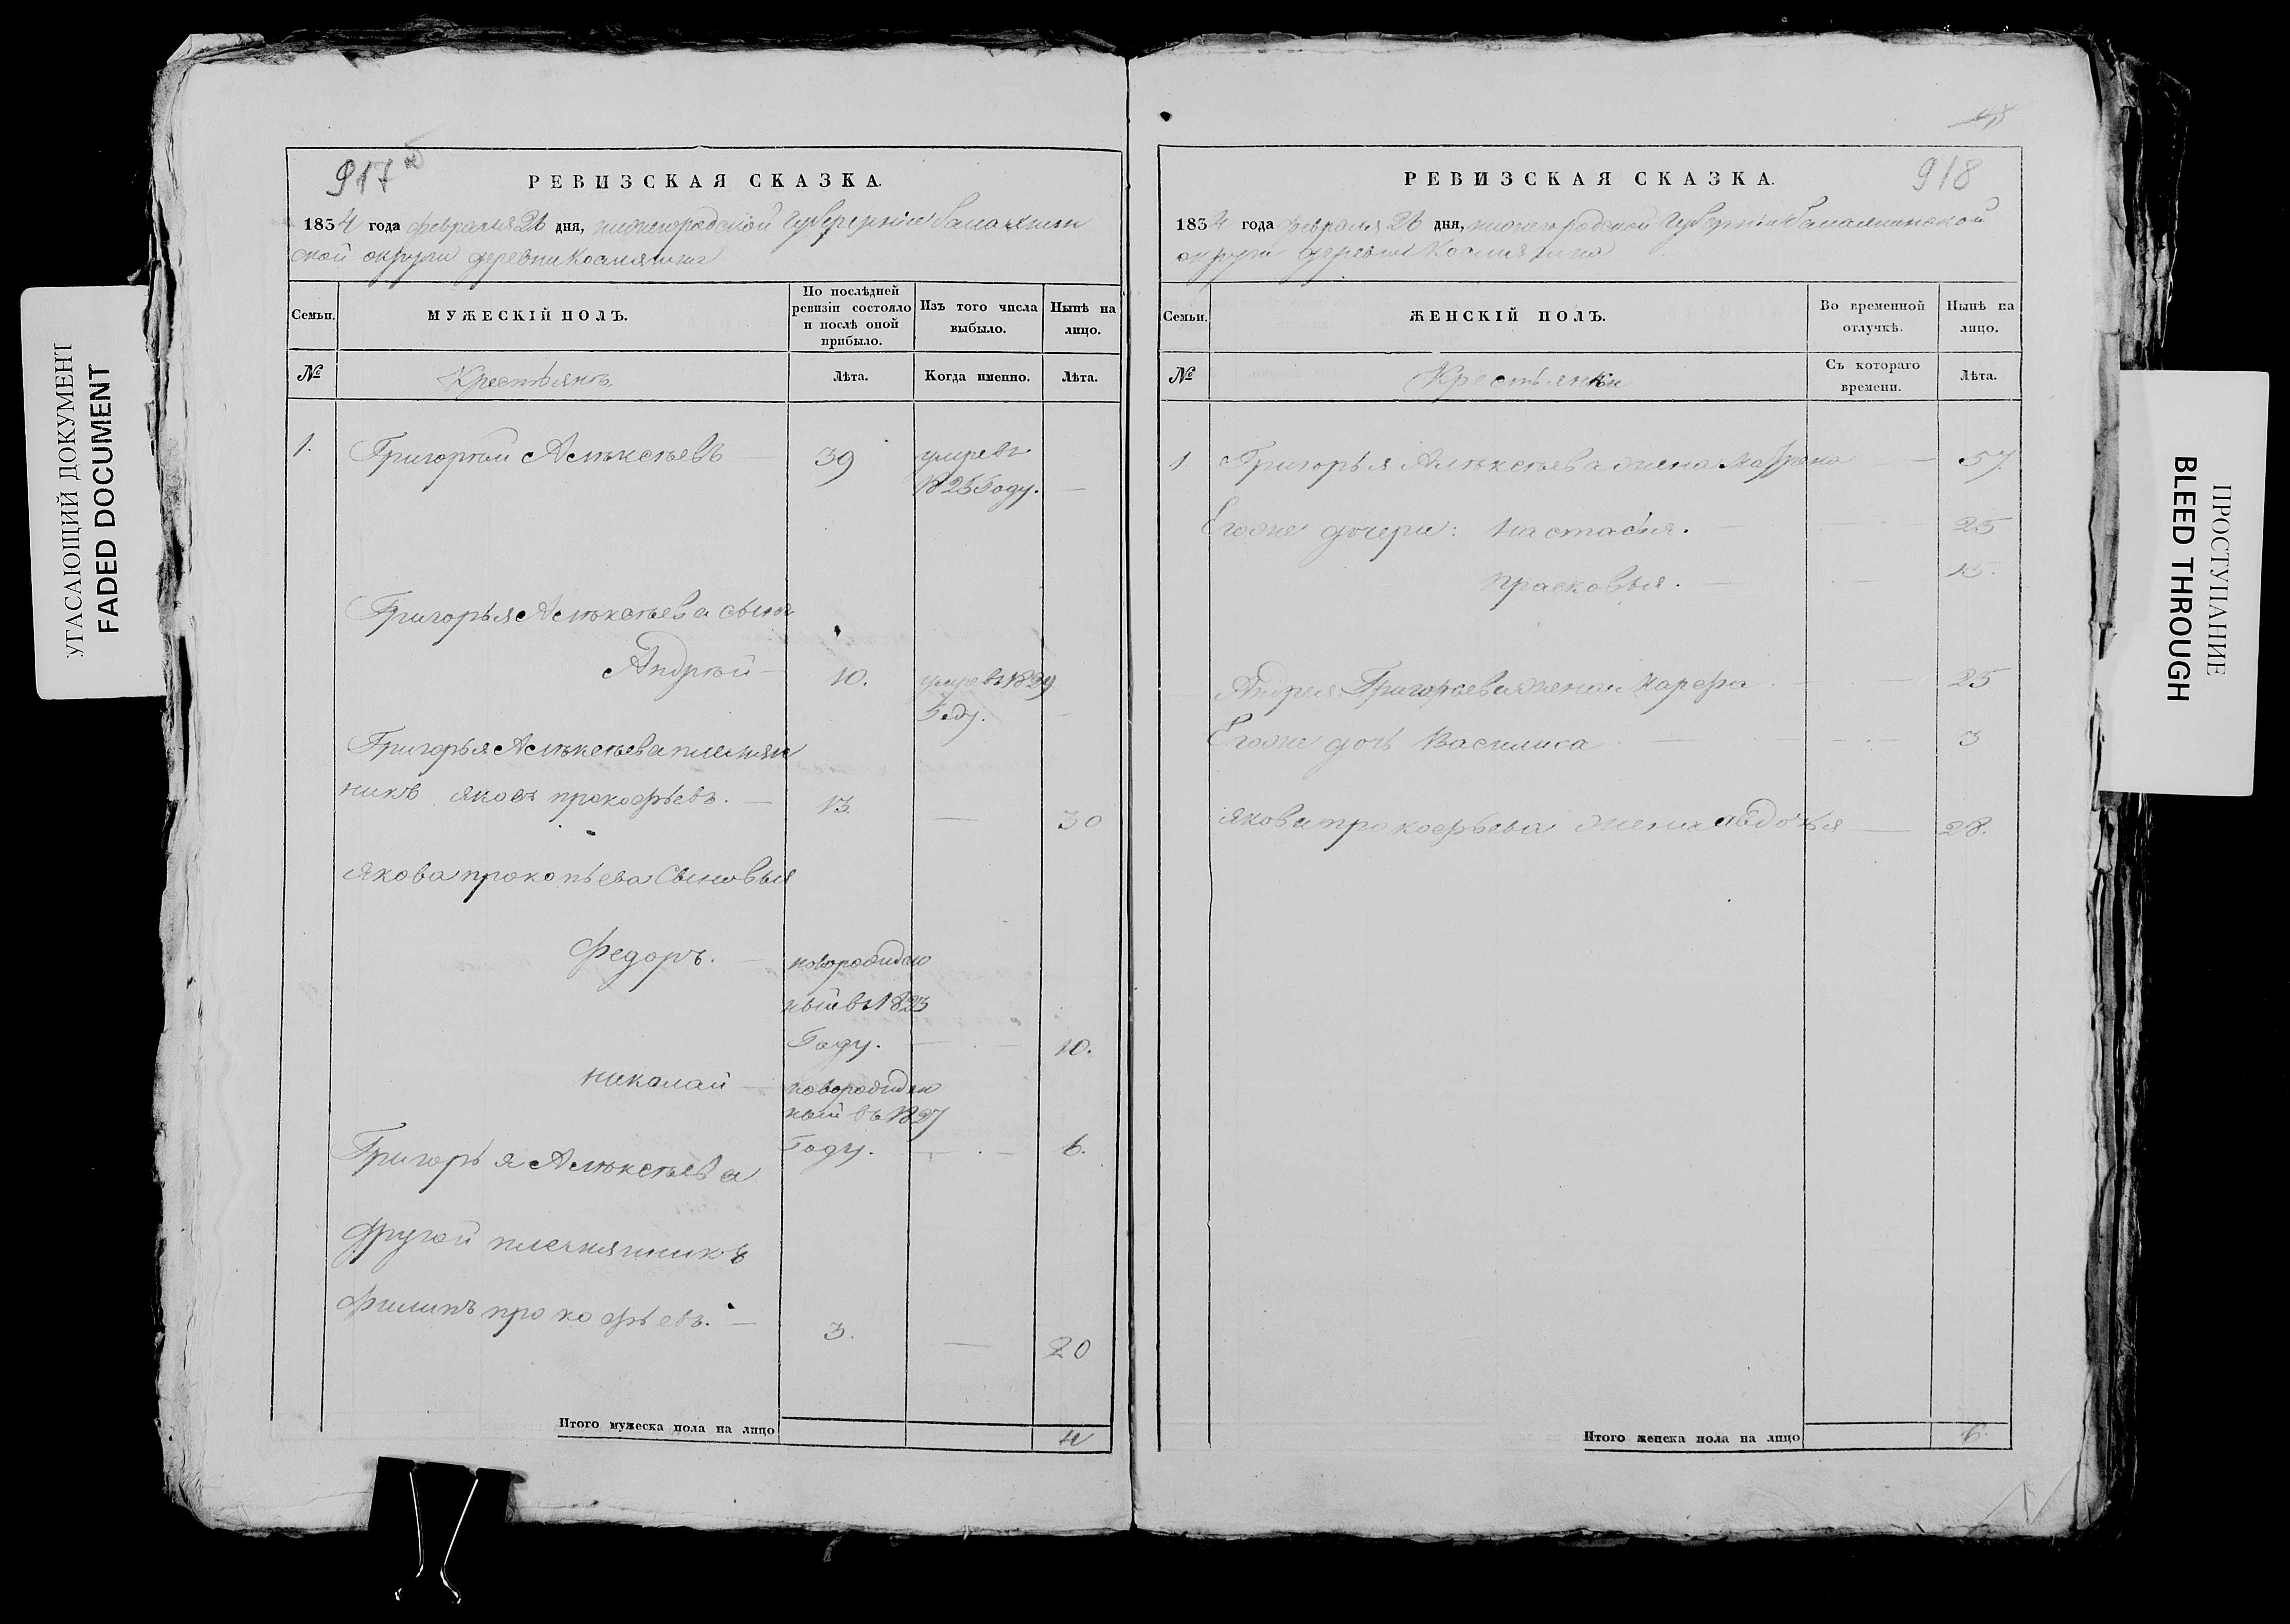 УГАСАЮЩИЙ ДОКУМЕНТ
FADED DOCUMENT
917
РЕВИЗСКАЯ СКАЗКА.
1834 года февраля 26 дня, нижегородской Губернiи балахнин
ской округи деревни
Семьи.
МУЖЕСКІЙ ПОЛЪ.
По послѣдней ревизіи состояло и послѣ оной прибыло.
Изъ того числа выбыло.
Нынѣ на лицо.
№
Крестьянъ.
Лѣта.
Когда именно.
Лѣта.
1. Григорѣй Алѣксѣевъ — 39 умревъ
1825 Году. —
Григорья Алѣксѣева сынъ
Андрѣй — 10. умревъ 1829
Году. —
Григорья Алѣксѣева племян
никъ яковъ прокофьевъ. — 13. — 30
якова прокопьева Сыновья
Федоръ. — новорожден
ный въ 1823
Году. — 10.
николай — новорожден
ный въ 1827
Году. — 6.
Григорья Алѣксѣева
другой племянникъ
филипъ прокофьевъ. — 3. — 20
Итого мужеска пола на лицо 4
918
РЕВИЗСКАЯ СКАЗКА.
1834 года февраля 26 дня, нижегородской Губернiи балахнинской
округи деревни
Семьи.
ЖЕНСКІЙ ПОЛЪ.
Во временной отлучкѣ.
Нынѣ на лицо.
№
Крестьянки
Съ котораго времени.
Лѣта.
1. Григорья Алѣксѣева жена Матрена — 57.
Егоже дочери: настасья. — 25
прасковья. — 13.
Андрея Григорьева жена марфа — 25
Егоже дочь Василиса — 3
якова прокофьева жена авдотья — 28.
Итого женска пола на лицо 6.
ПРОСТУПАНИЕ
BLEED THROUGH